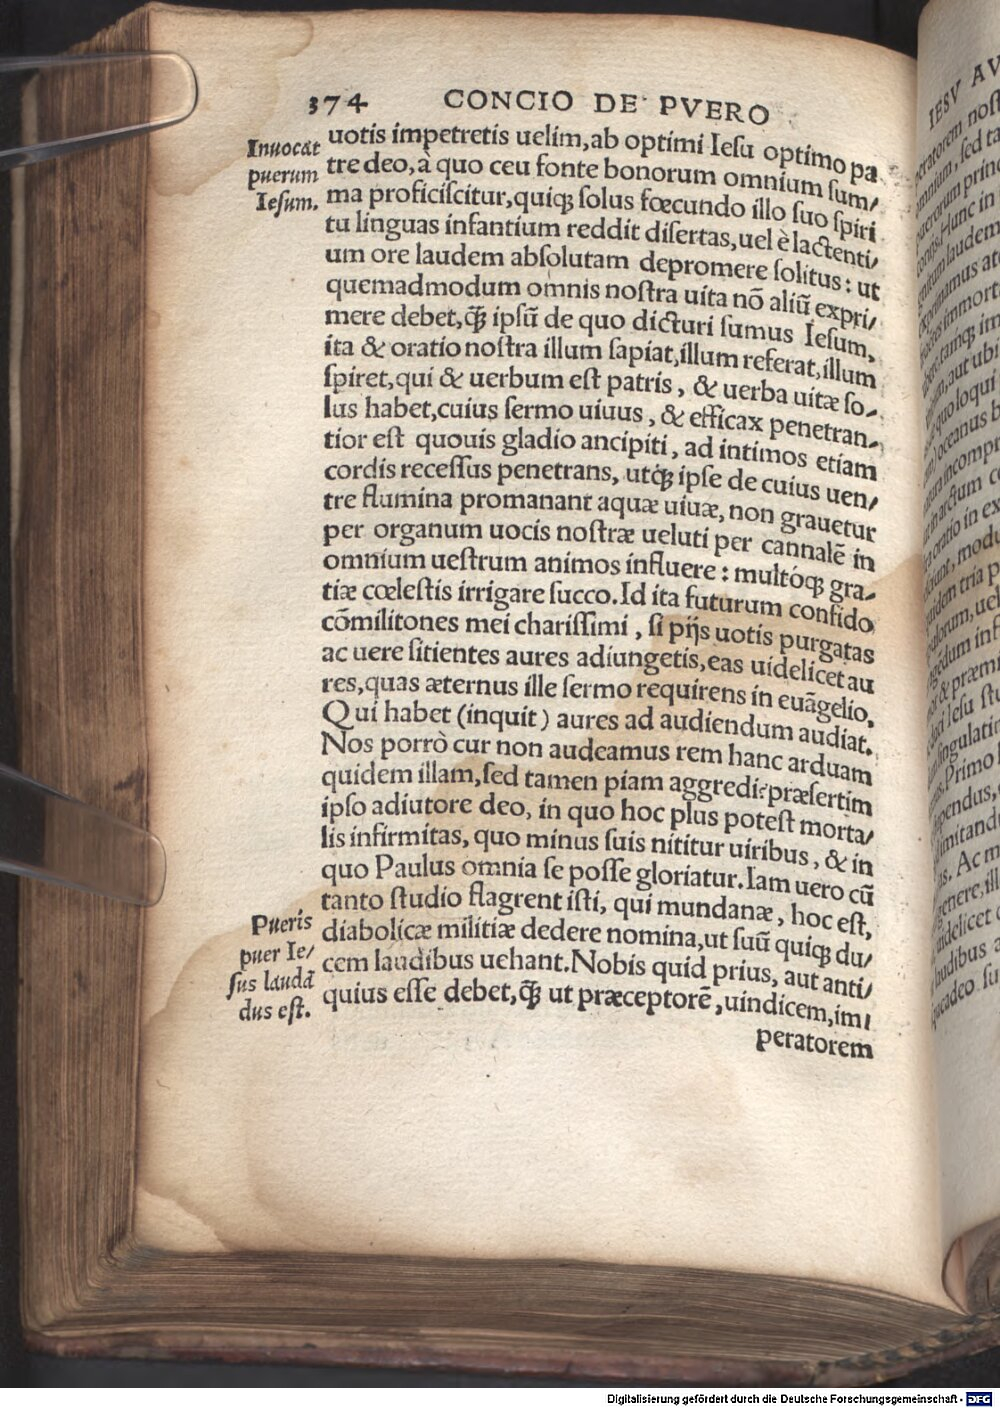 374 CONCIO DE PVERO
Inuocat
puerum
Iesum.
uotis impetretis uelim,ab optimi Iesu optimo pa
tre deo,à quo ceu fonte bonorum omnium sum/
ma proficiſcitur,quiq; ſolus fœcundo illo ſuo ſpiri
tu linguas infantium reddit diſertas,uel è lactenti/
um ore laudem abſolutam depromere ſolitus: ut
quemadmodum omnis noſtra uita nõ aliũ expri/
mere debet,q̃ ipſũ de quo dicturi ſumus Ieſum,
ita & oratio noſtra illum ſapiat,illum referat,illum
ſpiret,qui & uerbum eſt patris, & uerba uitæ ſo-
lus habet,cuius ſermo uiuus, & efficax penetran-
tior eſt quouis gladio ancipiti, ad intimos etiam
cordis receſſus penetrans, utq; ipſe de cuius uen/
tre flumina promanant aquæ uiuæ, non grauetur
per organum uocis noſtræ ueluti per cannalẽ in
omnium ueſtrum animos influere: multóq; gra-
tiæ cœleſtis irrigare ſucco. Id ita futurum confido
cõmilitones mei chariſſimi, ſi pijs uotis purgatas
ac uere ſitientes aures adiungetis,eas uidelicet au
res,quas æternus ille ſermo requirens in euãgelio,
Qui habet (inquit) aures ad audiendum audiat.
Nos porrò cur non audeamus rem hanc arduam
quidem illam,ſed tamen piam aggredi? præſertim
ipſo adiutore deo, in quo hoc plus poteſt morta/
lis infirmitas, quo minus ſuis nititur uiribus, & in
quo Paulus omnia ſe poſſe gloriatur. Iam uero cũ
tanto ſtudio flagrent iſti, qui mundanæ, hoc eſt,
diabolicæ militiæ dedere nomina,ut ſuũ quiq; du/
cem laudibus uehant. Nobis quid prius, aut anti/
quius eſſe debet,q̃ ut præceptorẽ, uindicem,im/
peratorem
Pueris
puer Ie/
ſus laudã
dus eſt.
IESV
Digitalisierung gefördert durch die Deutsche Forschungsgemeinschaft - DFG